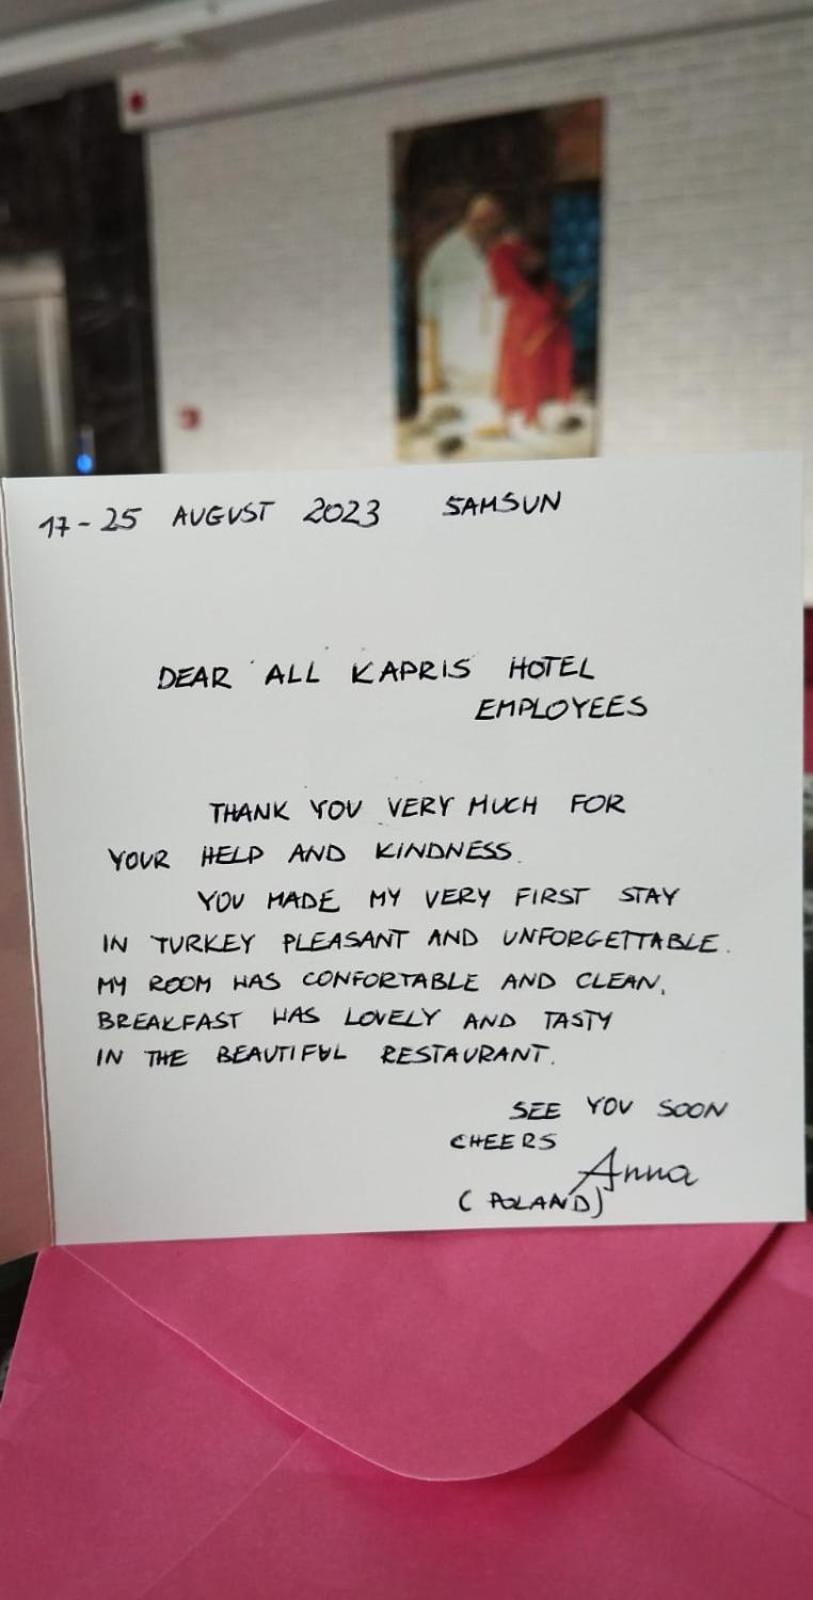 17-25 AUGUST 2023 SAMSUN
DEAR ALL KAPRIS HOTEL
EMPLOYEES
THANK YOU VERY MUCH FOR
YOUR HELP AND KINDNESS.
YOU MADE MY VERY FIRST STAY
IN TURKEY PLEASANT AND UNFORGETTABLE.
MY ROOM WAS CONFORTABLE AND CLEAN,
BREAKFAST WAS LOVELY AND TASTY
IN THE BEAUTIFUL RESTAURANT.
SEE YOU SOON
CHEERS
Anna
(POLAND)